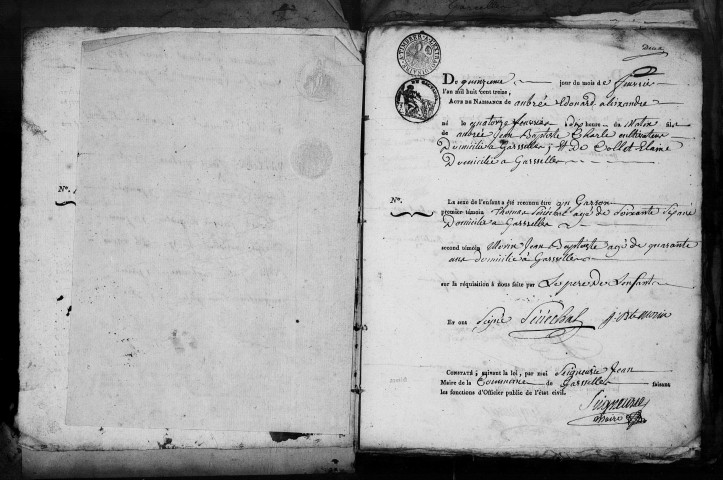 Deux
Du quinzieme jour du mois de fevrier
l'an mil huit cent treize,
ACTE DE NAISSANCE de aubrée Edouard alexandre
né le quatorze fevrier à dix heures du Matin fils
de aubrée Jean Baptiste Charle cultivateur
Domicilié à Gasville et De Collet
Domicilié à Gasville
N°.
N°.
Le sexe de l'enfant a été reconnu être un Garson
premier témoin Thomas Sénéchal agé de Soixante
Domicilié à Gasville
second témoin Morin Jean Baptiste agé de quarante
ans domicilié à Gasville
sur la réquisition à nous faite par Le pere de Lenfant
Et ont Signé Sénéchal Morin
CONSTATÉ, suivant la loi, par moi Seigneurie Jean
Maire de la Commune de Gasville faisant
les fonctions d'Officier public de l'état civil.
Seigneurie
Maire